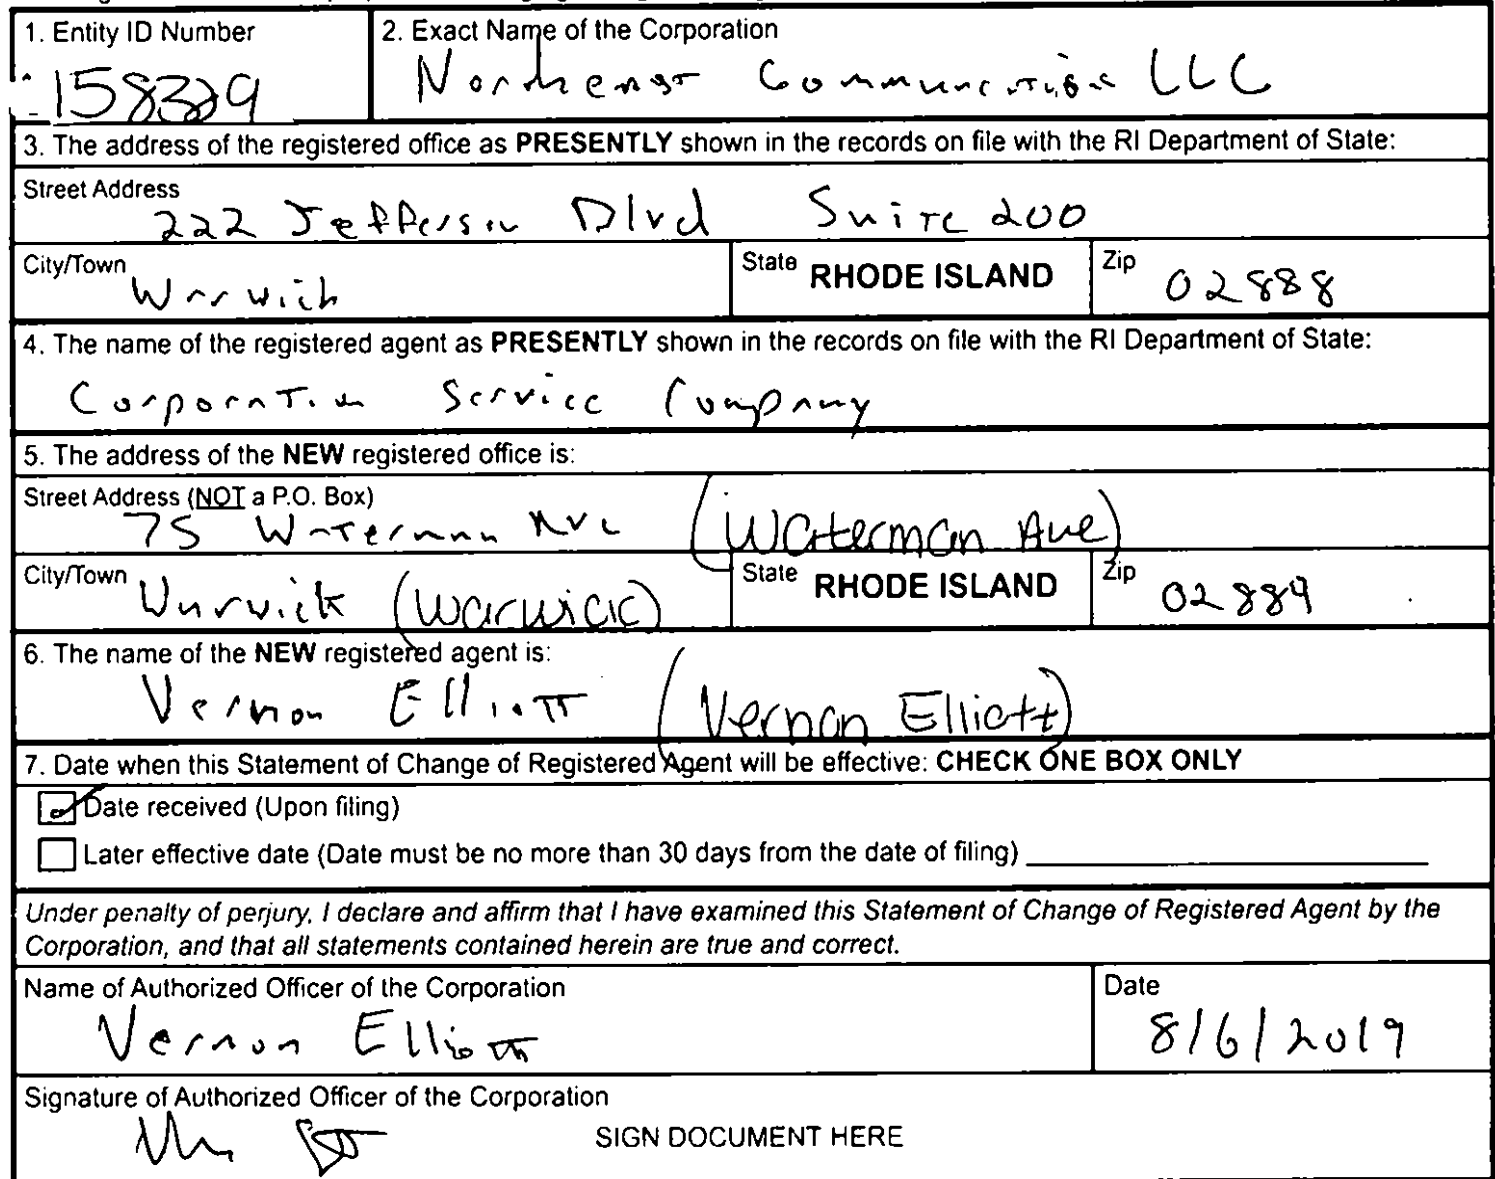 1. Entity ID Number
158329
2. Exact Name of the Corporation
Northeast Communications LLC
3. The address of the registered office as PRESENTLY shown in the records on file with the RI Department of State:
Street Address
222 Jefferson Blvd Suite 200
City/Town
Warwick
State RHODE ISLAND
Zip
02888
4. The name of the registered agent as PRESENTLY shown in the records on file with the RI Department of State:
Corporation Service Company
5. The address of the NEW registered office is:
Street Address (NOT a P.O. Box)
75 Waterman Ave (Waterman Ave)
City/Town
Warwick (Warwick)
State RHODE ISLAND
Zip
02889
6. The name of the NEW registered agent is:
Vernon Elliott (Vernon Elliott)
7. Date when this Statement of Change of Registered Agent will be effective: CHECK ONE BOX ONLY
Date received (Upon filing)
Later effective date (Date must be no more than 30 days from the date of filing)
Under penalty of perjury, I declare and affirm that I have examined this Statement of Change of Registered Agent by the
Corporation, and that all statements contained herein are true and correct.
Name of Authorized Officer of the Corporation
Vernon Elliott
Date
8/6/2019
Signature of Authorized Officer of the Corporation
SIGN DOCUMENT HERE